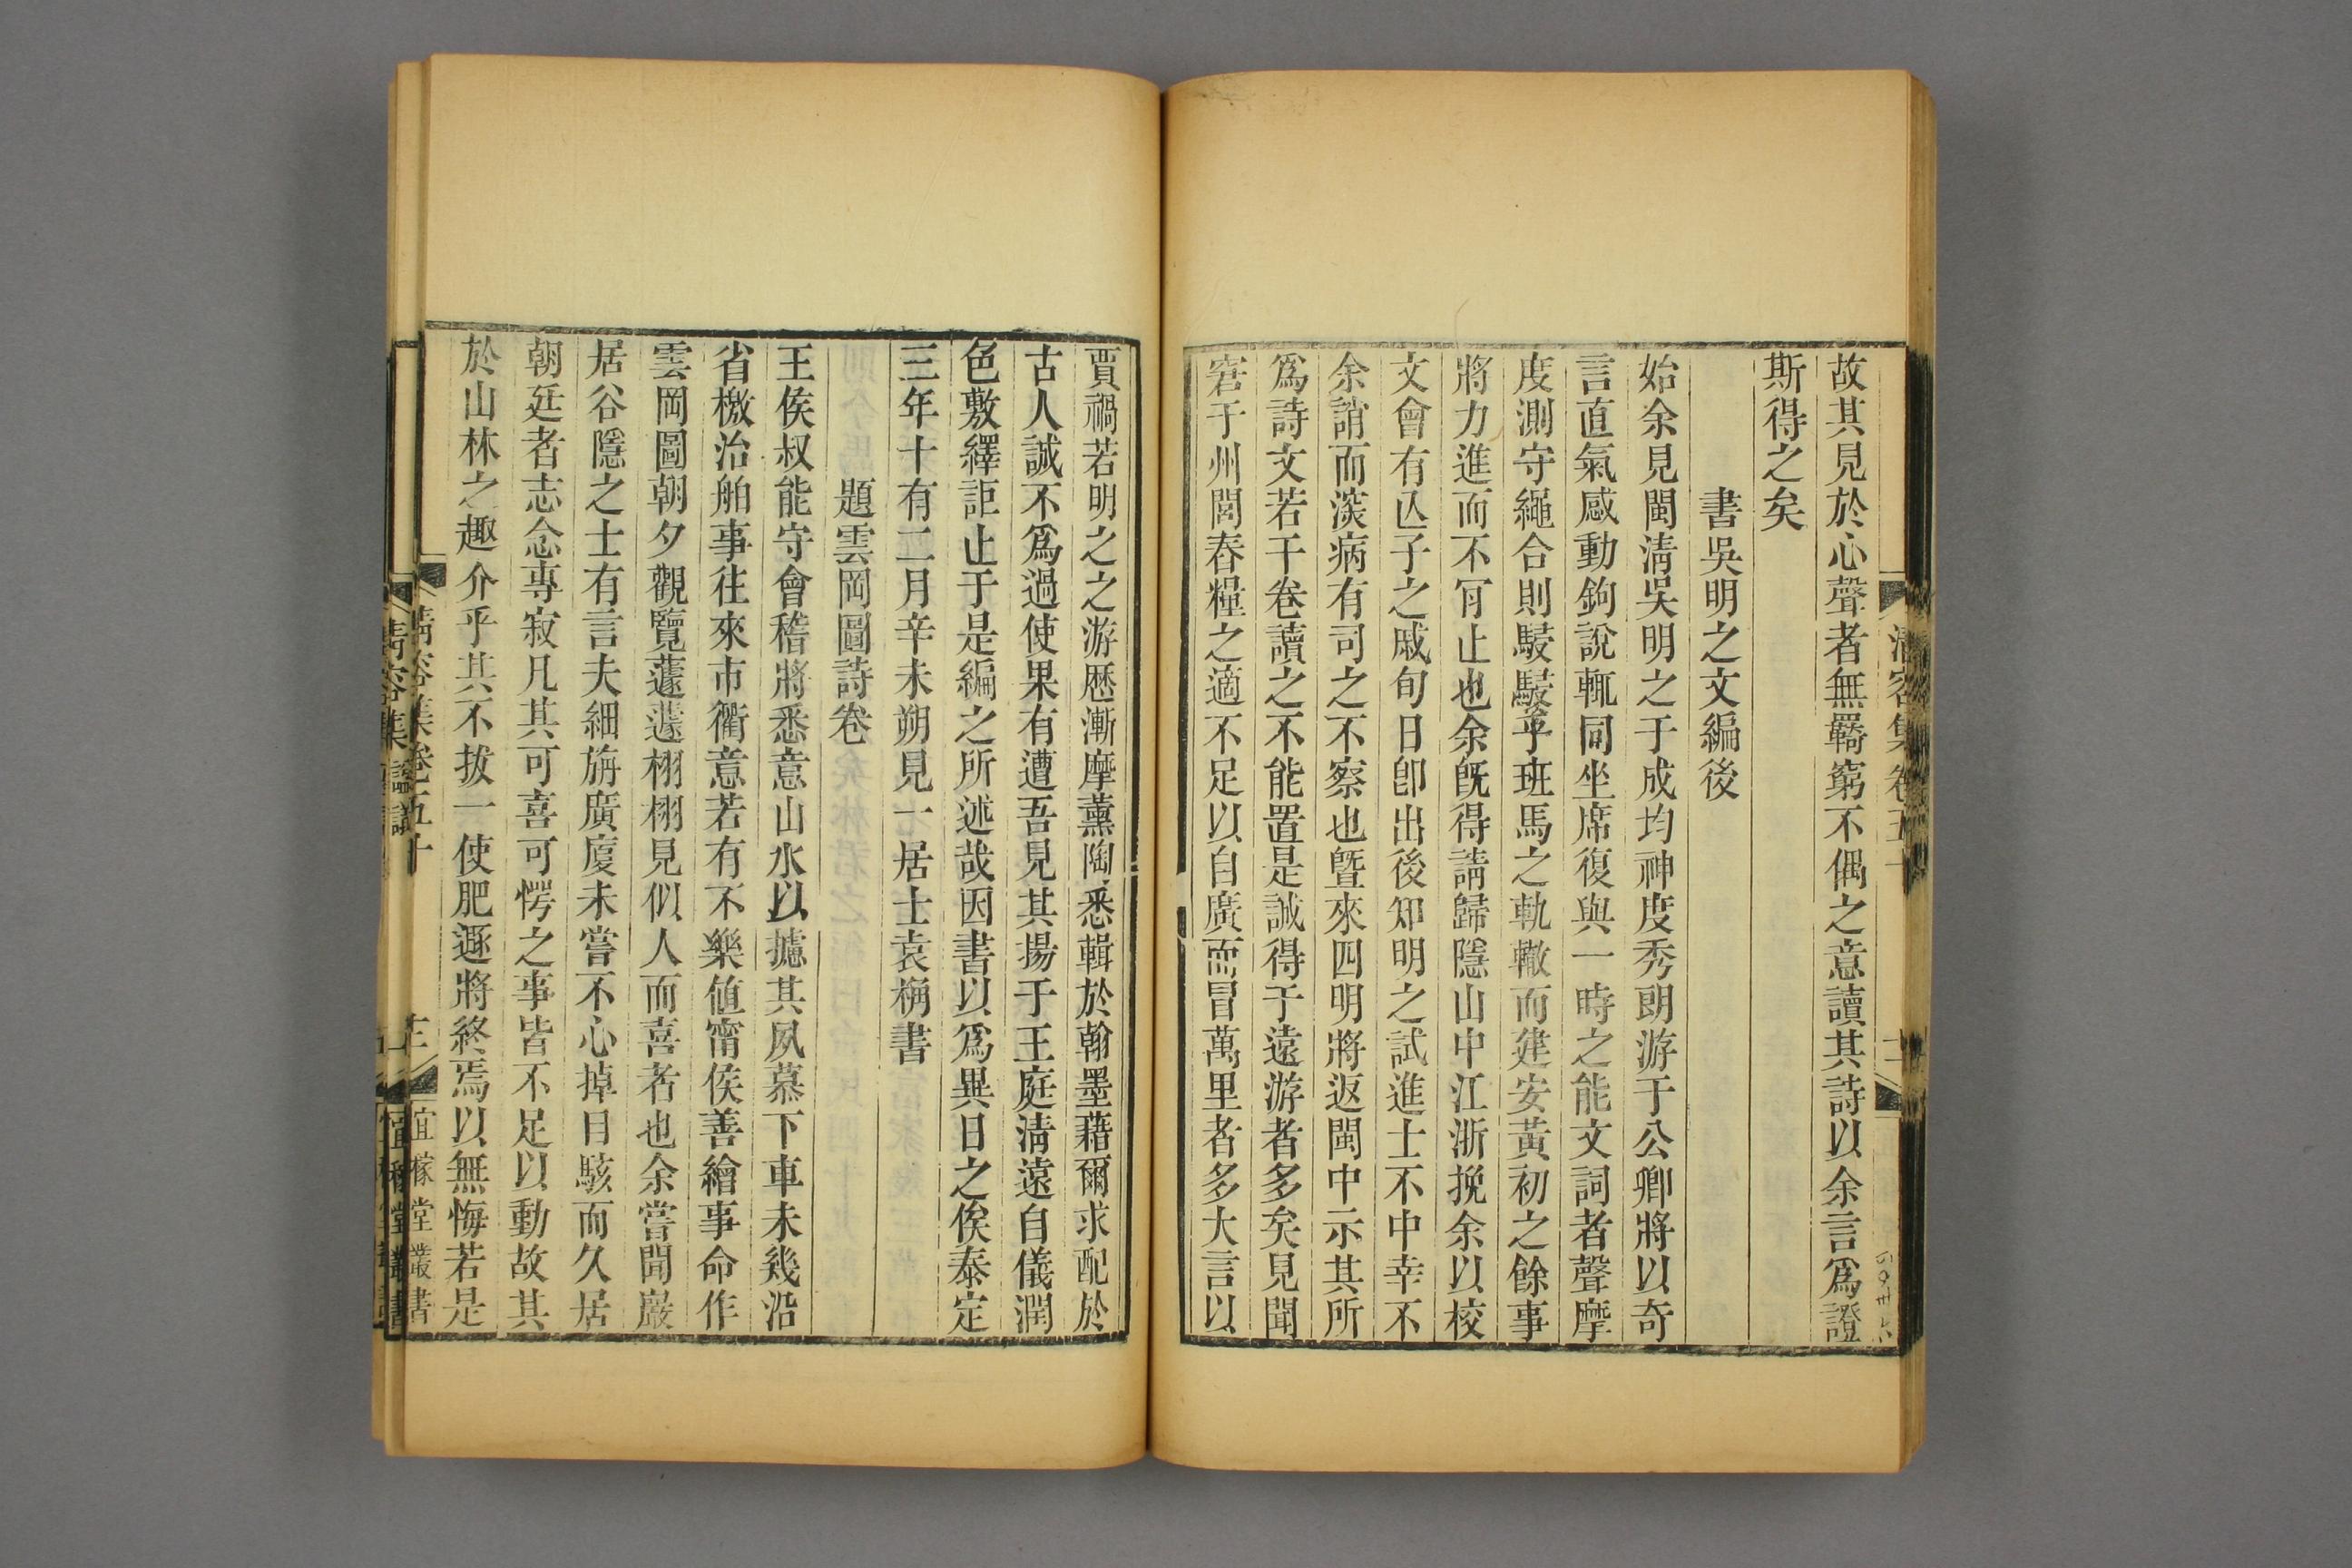 故其見於心聲者無羇窮不偶之意讀其詩以余言爲證
斯得之矣
書吳明之文編後
始余見閩淸吳明之于成均神度秀朗游于公卿將以奇
言直氣感動鉤說輒同坐席復與一時之能文詞者聲摩
度測守繩合則駸駸乎班馬之軌轍而建安黃初之餘事
將力進而不肎止也余旣得請歸隱山中江浙挽余以校
文會有亾子之戚旬日卽出後知明之試進士不中幸不
余誚而深病有司之不察也曁來四明將返閩中示其所
爲詩文若干卷讀之不能置是誠得于遠游者多矣見聞
窘于州閭春糧之適不足以自廣而冒萬里者多大言以
賈禍若明之之游歷漸摩薰陶悉輯於翰墨藉爾求配於
古人誠不爲過使果有遭吾見其揚于王庭淸遠自儀潤
色敷繹詎止于是編之所述哉因書以爲異日之俟泰定
三年十有二月辛未朔見一居士袁桷書
題雲岡圖詩卷
王侯叔能守會稽將悉意山水以攄其夙慕下車未幾沿
省檄治舶事往來市衢意若有不樂値甯侯善繪事命作
雲岡圖朝夕觀覽蘧蘧栩栩見似人而喜者也余嘗聞巖
居谷隱之士有言夫細旃廣廈未嘗不心掉目駭而久居
朝廷者志念專寂凡其可喜可愕之事皆不足以動故其
於山林之趣介乎其不拔一使肥遯將終焉以無悔若是
淸容集卷五十
三
宜稼堂叢書